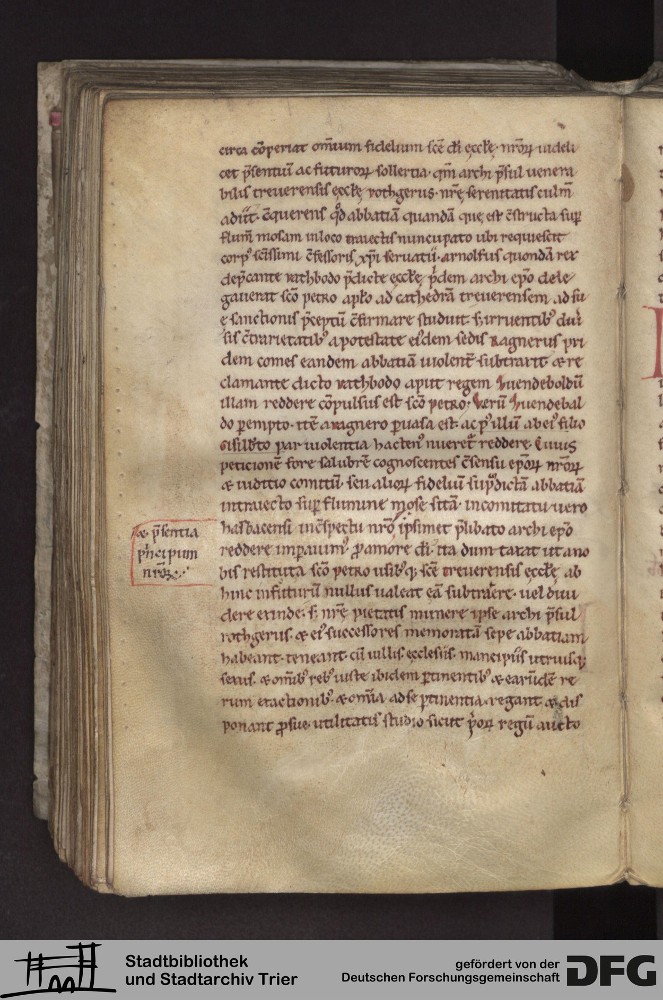 circa cōperiat om̄ium fidelium scē dī ęcclę. nr̄oꝝ uideli
cet p̄sentiū ac futuroꝝ sollertia. qm̄ archi p̄sul uenera
bilis treuerensis ęcclę rothgerus. nr̄ę serenitatis culm̄
adiit. c̄querens qd̄ abbatiā quandā que est c̄structa sup̄
flum̄ mosam in loco traiectis nuncupato ubi requiescit
corpꝰ sc̄issimi c̄fessoris xp̄i seruatii. arnolfus quondā rex
dep̄cante rathbodo p̄dictę ęcclę p̄dem archi ep̄o dele
gauerat sc̄o petro aplo ad cathedrā treuerensem. ad su
ę sanctionis p̄ceptū c̄firmare studuit. s; irruentibꝰ diu
sis c̄trarietatibꝰ a potestate eiꝰdem sedis Ragnerus pri
dem comes eandem abbatiā uiolent̄ subtraxit. & re
clamante dicto rathbodo aput regem Zuendeboldū
illam reddere cōpulsus est sc̄o petro. Verū Zuendebal
do perempto. itē a ragnero peruasa est. ac p̱ illū ab eiꝰ filio
sisilb̄to par uiolentia hactenꝰ nueret̄ reddere. Cuius
peticionē fore salubrē cognoscentes c̄sensu ep̄oꝝ nr̄oꝝ
& iuditio comitū. seu alioꝝ fideliū sup̄dictā abbatiā
in traiecto sup̄ flumine mose sitā. in comitatu uero
hasbacensi in c̄spectu nr̄o ipsimet p̄libato archi ep̄o
reddere imperauimꝰ. p̱ amore dī. ita dum taxat ut ano
bis restituta sc̄o petro usibꝰq; scē treuerensis ęcclę ab
hinc in futurū nullus ualeat eā subtrahere. uel diui
dere exinde. s; nr̄e pietatis munere ipse archi p̄sul
rothgerus. & eiꝰ successores memoratā sepe abbatiam
habeant. teneant. cū uillis. ecclesiis. mancipiis utriusq;
sexus. & om̄ibꝰ rebꝰ iuste ibidem pertinentibꝰ & earūdē re
rum exactionibꝰ. & om̄ia ad se pertinentia. regant & dis
ponant p̱ sue utilitatis studio sicut p̄oꝝ regū aucto
& p̄sentia
p̄ncipum
nr̄oꝝ
Stadtbibliothek
und Stadtarchiv Trier
gefördert von der
Deutschen Forschungsgemeinschaft
DFG